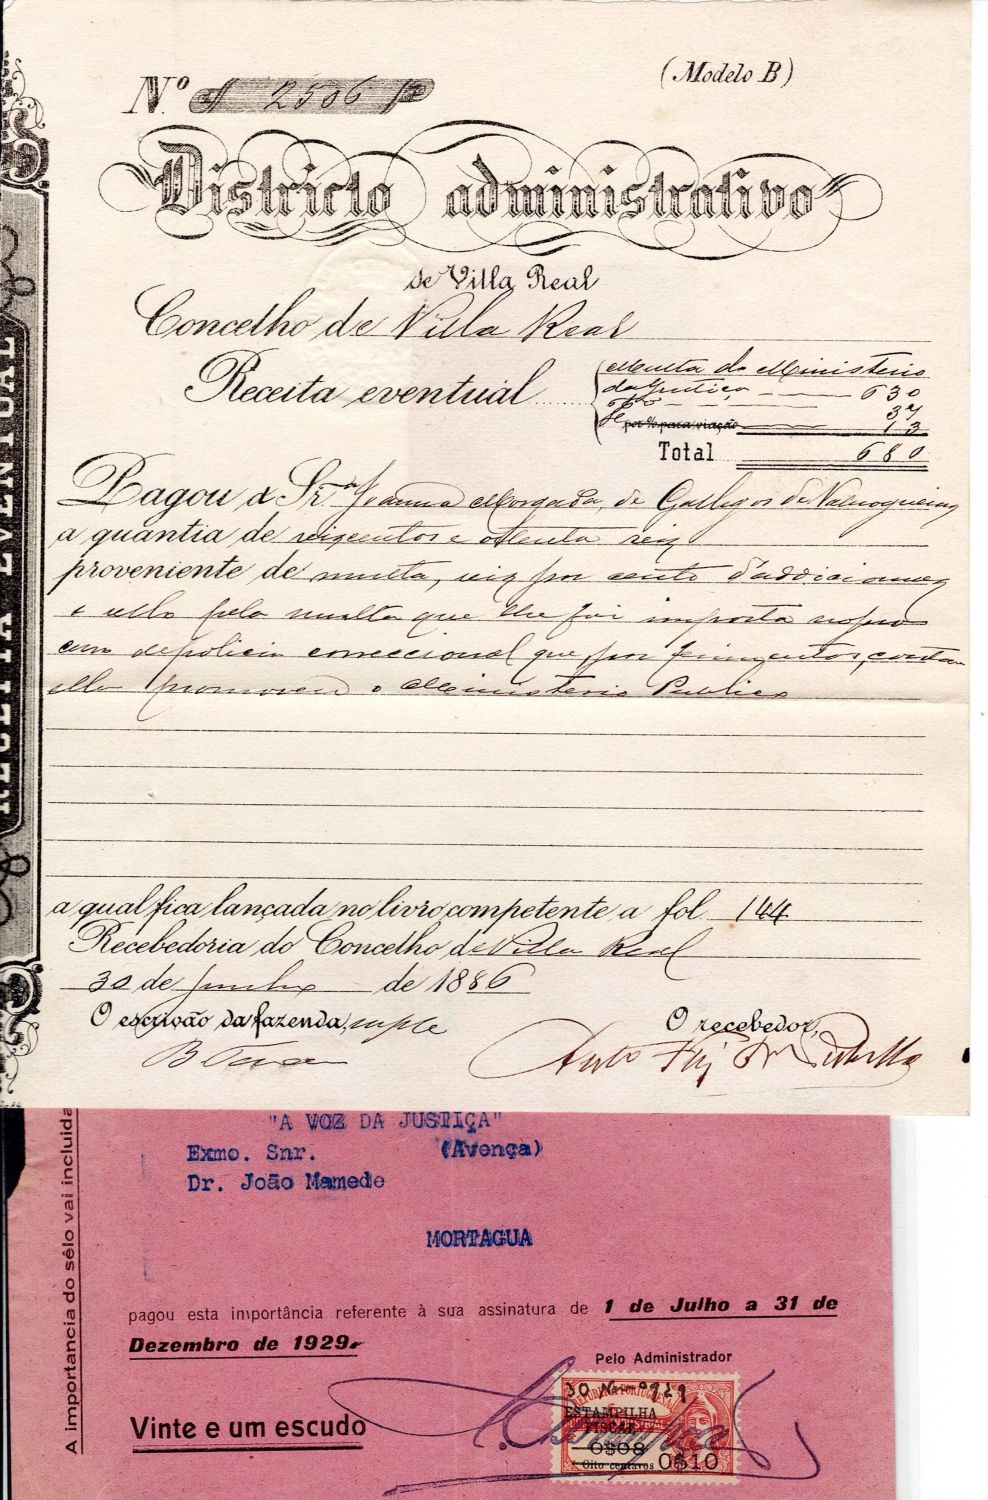 Nº 2506
(Modelo B)
Districto administrativo
de Villa Real
Concelho de Villa Real
Receita eventual
Multa do Ministerio
da Justiça 630
6% 37
Sello por % para viação 13
Total 680
Pagou a Srª Joanna Morgada, de Gallegos de
a quantia de seiscentos e oitenta reis
proveniente de multa, seis por cento d'addicionaes
e sello pela multa que lhe foi imposta no pro
cesso de policia correccional que, por ferimentos, contra
ella promoveu o Ministerio Publico
a qual fica lançada no livro competente a fol. 144
Recebedoria do Concelho de Villa Real
30 de Junho de 1886
O escrivão da fazenda,
O recebedor,
RECEITA EVENTUAL
"A VOZ DA JUSTIÇA"
Exmo. Snr. (Avença)
Dr. João Mamede
MORTAGUA
pagou esta importância referente à sua assinatura de 1 de Julho a 31 de
Dezembro de 1929
Pelo Administrador
Vinte e um escudo
30 N. 929
REPUBLICA PORTUGUESA
ESTAMPILHA
FISCAL
0$08
Oito centavos 0$10
A importancia do sêlo vai incluida